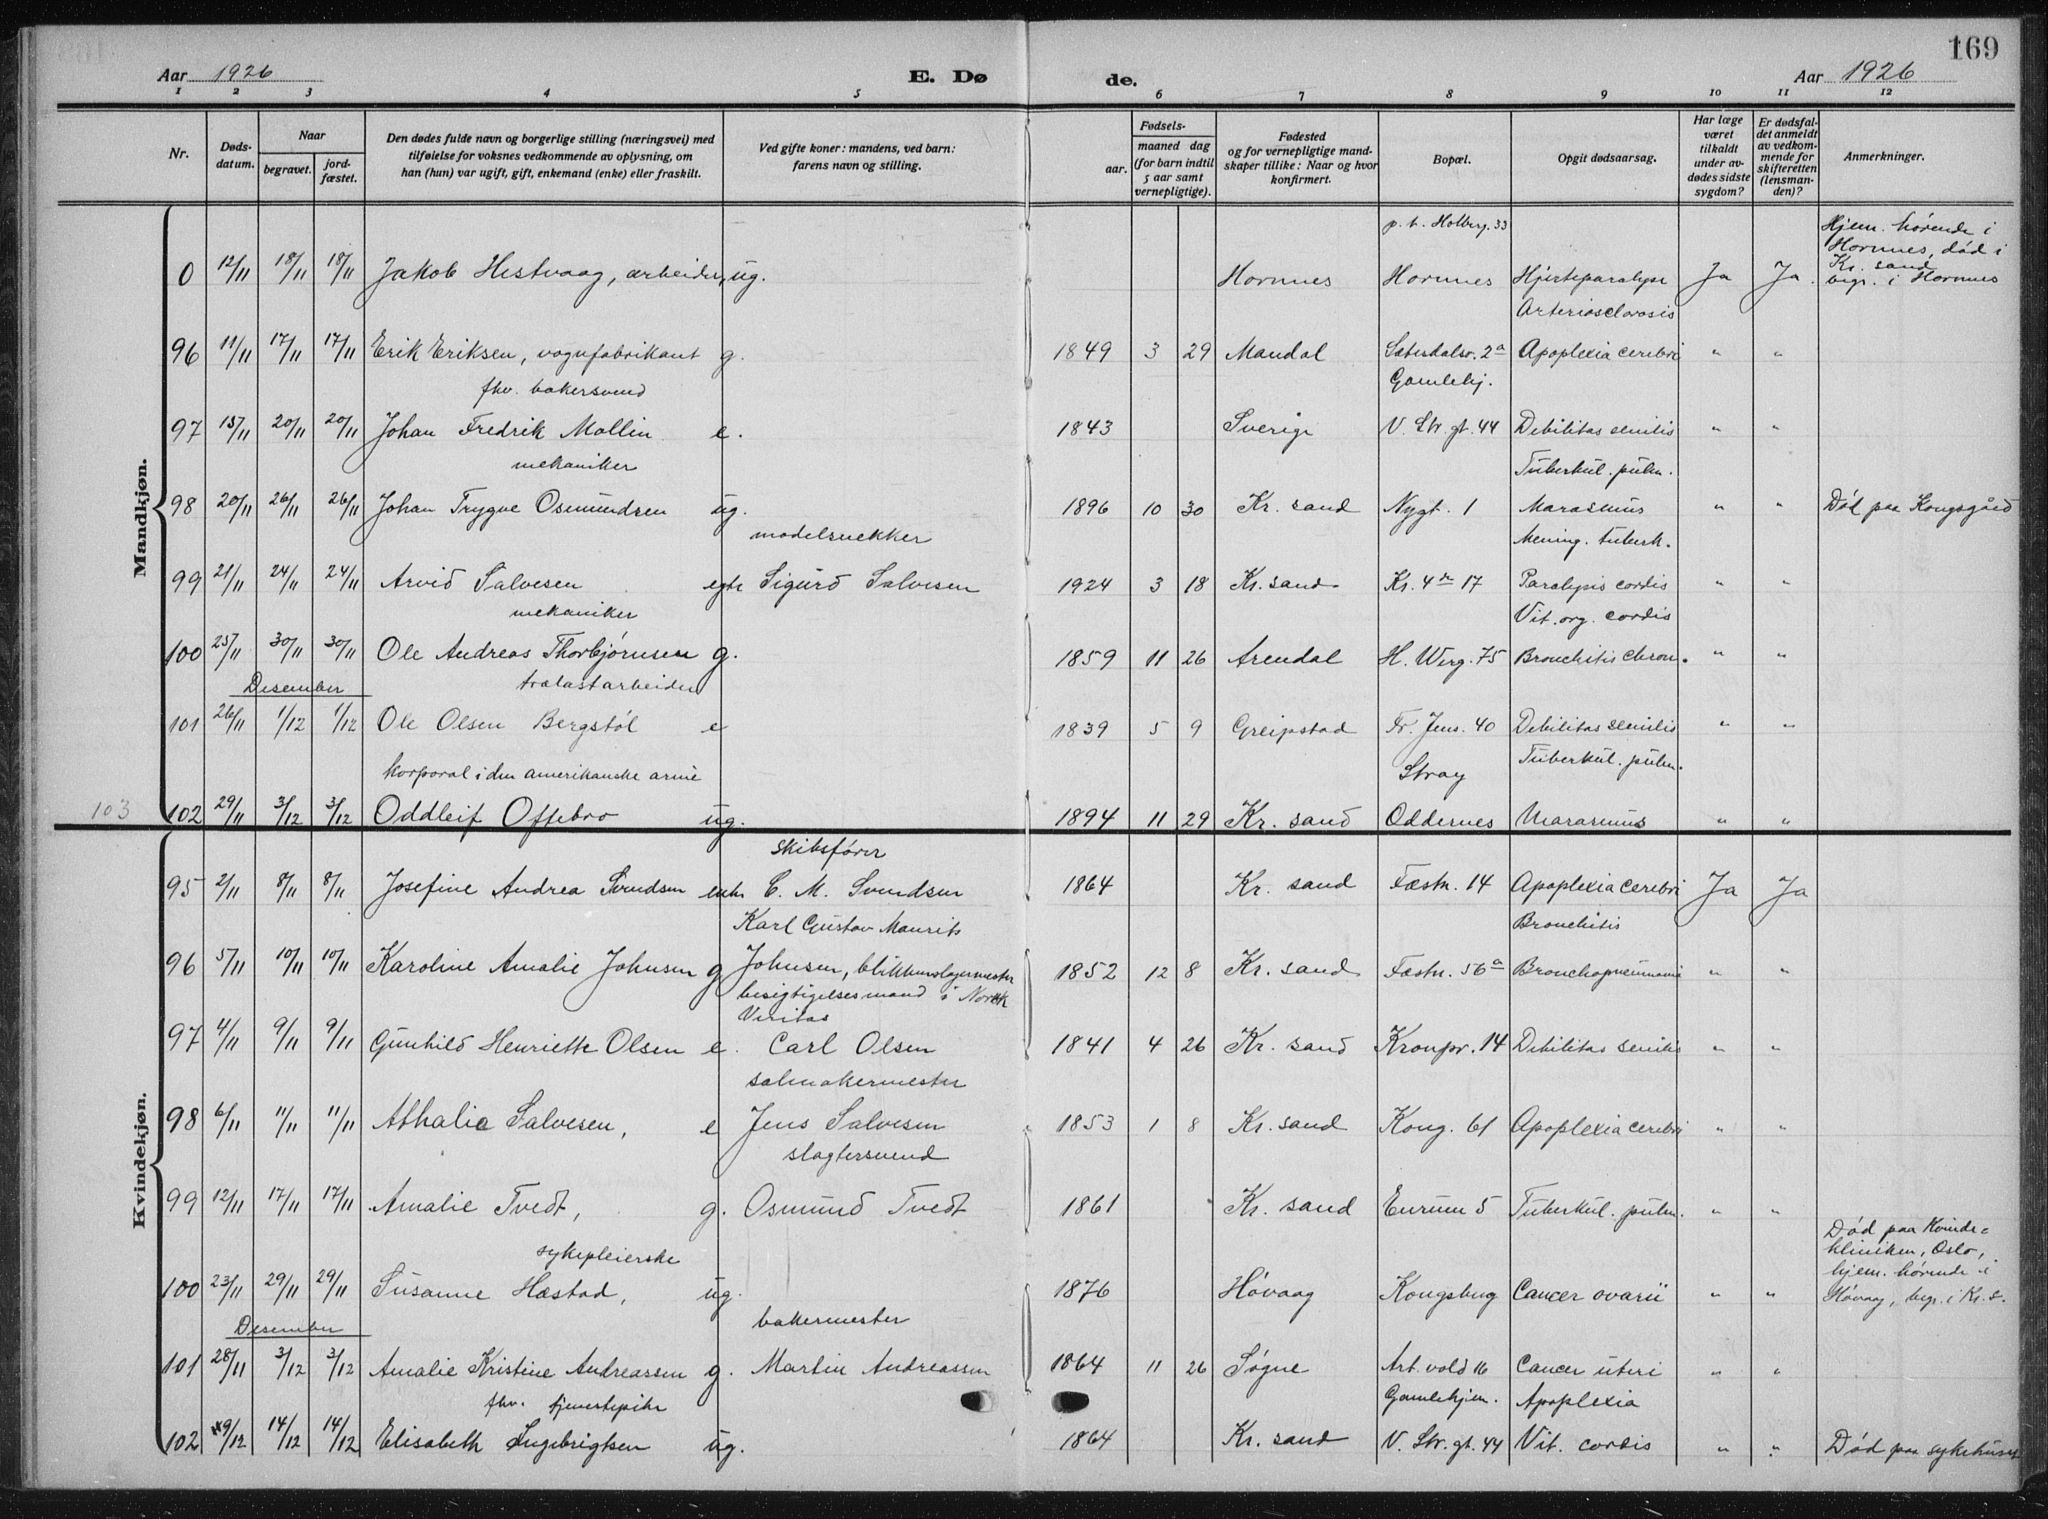 169
Aar 1926 E. Dø de. Aar 1926
1 2 3 4 5 6 7 8 9 10 11 12
Nr. Døds-datum. Naar begravet. jord-fæstet. Den dødes fulde navn og borgerlige stilling (næringsvei) med tilføielse for voksnes vedkommende av oplysning, om han (hun) var ugift, gift, enkemand (enke) eller fraskilt. Ved gifte koner: mandens, ved barn: farens navn og stilling. Fødsels- aar. maaned dag (for barn indtil 5 aar samt vernepligtige). Fødested og for vernepligtige mand-skaper tillike: Naar og hvor konfirmert. Bopæl. Opgit dødsaarsag. Har læge været tilkaldt under av-dødes sidste sygdom? Er dødsfal-det anmeldt av vedkom-mende for skifteretten (lensman-den)? Anmerkninger.
Mandkjøn.
p. t. Holberg. 33 Hjem. hørende i
Hornnes, død i
Kr. sand
0 12/11 18/11 18/11 Jakob Hestvaag, arbeider, ug. Hornnes Hornnes Hjerteparalyse Ja Ja. begr. i Hornnes
Arteriosclorosis
96 11/11 17/11 17/11 Erik Eriksen, vognfabrikant g. 1849 3 29 Mandal Sætesdalsv. 2a Apoplexia cerebri " "
fhv. bakersvend Gamlehj.
97 15/11 20/11 20/11 Johan Fredrik Mollin e. 1843 Sverige V. Str. gt. 44 Debilitas senilis " "
mekaniker Tuberkul. pulm.
98 20/11 26/11 26/11 Johan Trygve Osmundsen ug. 1896 10 30 Kr. sand Nygt. 1 Marasmus " " Død paa Kongsgård
modelsnekker Mening. tuberk.
99 21/11 24/11 24/11 Arvid Salvesen egte Sigurd Salvesen 1924 3 18 Kr. sand Kr. 4de 17 Paralysis cordis " "
mekaniker Vit. org. cordis
100 25/11 30/11 30/11 Ole Andreas Thorbjørnsen g. 1859 11 26 Arendal H. Werg. 75 Bronchitis chron. " "
Desember trælastarbeider
101 26/11 1/12 1/12 Ole Olsen Bergstøl e 1839 5 9 Greipstad Fr. Jens. 40 Debilitas senilis " "
korporal i den amerikanske armé Stray Tuberkul. pulm.
103 102 29/11 3/12 3/12 Oddleif Oftebro ug. 1894 11 29 Kr. sand Oddernes Marasmus " "
Kvindekjøn.
skibsfører
95 2/11 8/11 8/11 Josefine Andrea Svendsen enke C. M. Svendsen 1864 Kr. sand Fæstn. 14 Apoplexia cerebri Ja Ja
Karl Gustav Maurits Bronchitis
96 5/11 10/11 10/11 Karoline Amalie Johnsen g Johnsen, blikkenslagermester 1852 12 8 Kr. sand Fæstn. 56a Bronchopneumonie " "
besigtigelsesmand i Norsk
Veritas
97 4/11 9/11 9/11 Gunhild Henriette Olsen e. Carl Olsen 1841 4 26 Kr. sand Kronpr. 14 Debilitas senilis " "
salmakermester
98 6/11 11/11 11/11 Athalie Salvesen, e Jens Salvesen 1853 1 8 Kr. sand Kong. 61 Apoplexia cerebri " "
slagtersvend
99 12/11 17/11 17/11 Amalie Tvedt, g. Osmund Tvedt 1861 Kr. sand Enrum 5 Tuberkul. pulm. " "
Død paa Kvinde-
sykepleierske kliniken, Oslo,
hjem. hørende i
100 23/11 29/11 29/11 Susanne Hæstad, ug. 1876 Høvaag Kongsbug Cancer ovarii " " Høvaag, begr. i Kr. s.
Desember bakermester
101 28/11 3/12 3/12 Amalie Kristine Andreassen g. Martin Andreassen 1864 11 26 Søgne Art. vold 16 Cancer uteri " "
fhv. tjenestepike Gamlehjem. Apoplexia
102 9/12 14/12 14/12 Elisabeth Ingebrigtsen ug. 1864 Kr. sand V. Str. gt. 44 Vit. cordis " " Død paa sykehuset